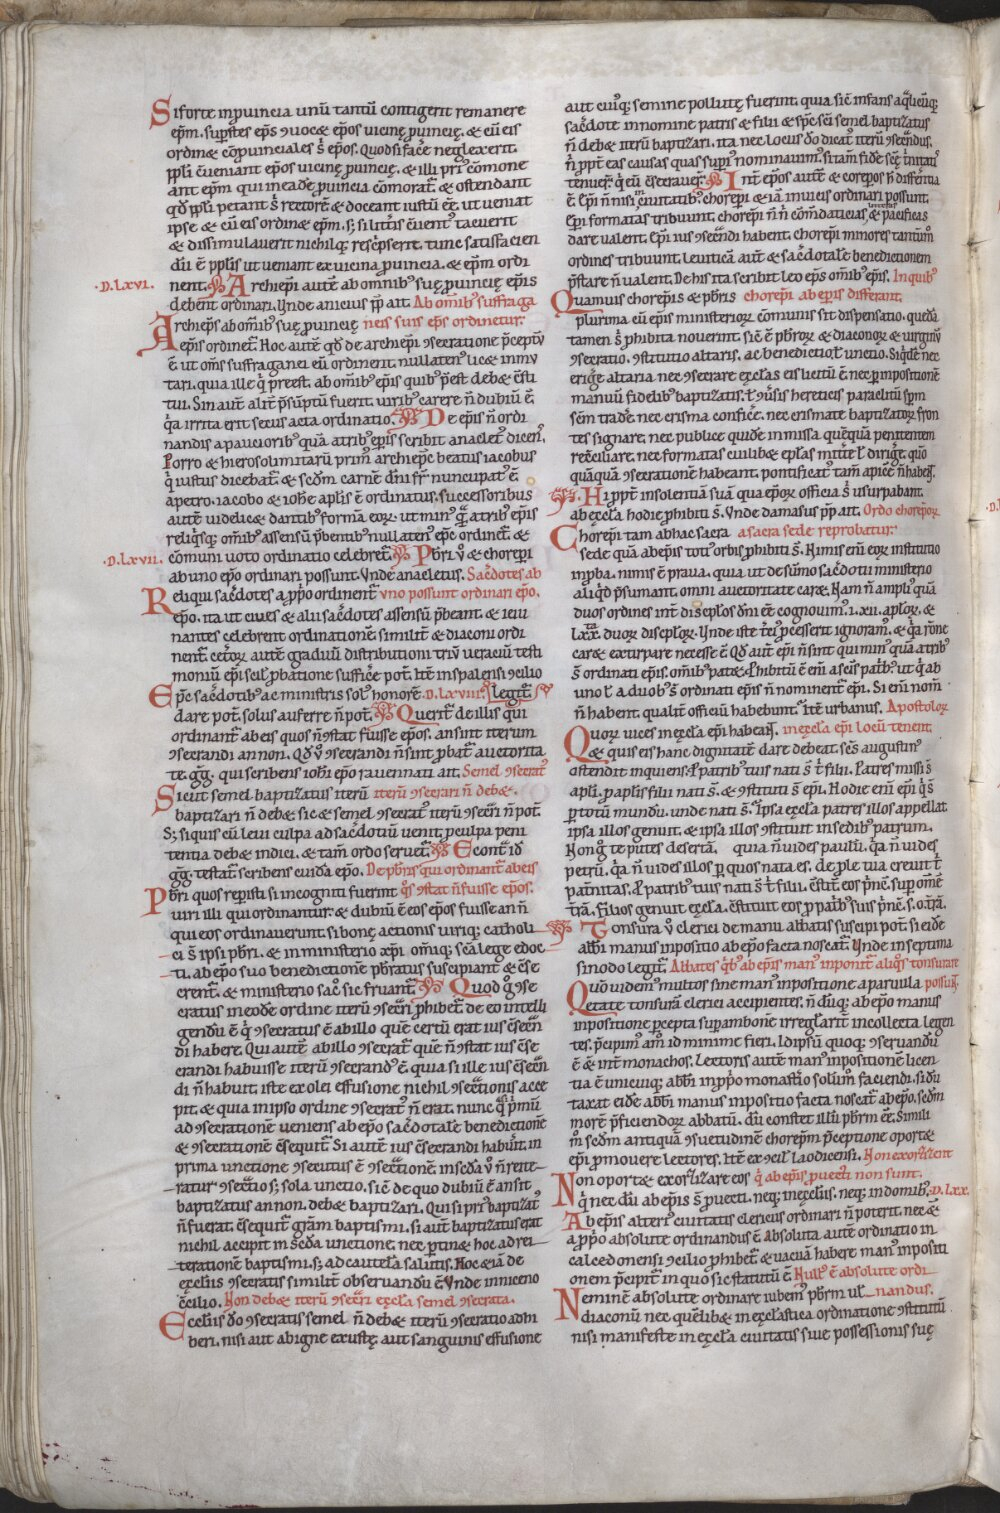 Si forte in ꝓuincia unū tantū contigerit remanere
ep̄m. suꝑstes ep̄s ꝯuocæ ep̄os uicinę ꝓuincię. & cū eis
ordinæ cōꝓuinciales s̄ ep̄os. Quod si facĕe neglexerit.
ant ep̄m qui in eadē ꝓuincia cōmorat̄. & ostendant
ipse & cū eis ordinæ ep̄m. s; si
& dissimulauerit nichilq; tunc satisfacien
dū ē ut ueniant ex uicina ꝓuincia. & ep̄m ordi
·D. lxvi. nent̄. Archiep̄i autē ab omnib; suę ꝓuincię ep̄is
debent ordinari. Vnde anicius pp̄ ait. Ab om̄ib; suffraga
Archiep̄s ab om̄ib; suę ꝓuincię neis suis ep̄s ordinetur.
aep̄is ordinet̄. Hoc autē qđ de archiep̄i ꝯsecratione p̄ceptū
ē ut om̄s suffraganei eū ordinent. nullatenus licæ inmu
tari. quia ille q̄ preest. ab om̄ib; ep̄is quib; p̄est debæ
tui. Sin aut̄ alit̄ p̄sūptū fuerit. uirib; carere ñ dubiū ē.
q̄a irrita erit secus acta ordinatio. De ep̄is ñ ordi
nandis a paucioribus quā a trib; ep̄is scribit anacletus dicens.
Porro & hierosolimitarū primus archiep̄c beatus iacobus
q̄ iustus dicebat̄. & scđm carnē dn̄i fr̄ nuncupatus ē.
a petro. iacobo & ioh̄e apl̄is ē ordinatus. successoribus
autē uidelicæ dantibus formā eoꝝ. ut minus quā a trib; ep̄is
reliq̄sq; om̄ib; assensū p̄bentibus nullatenus ep̄c ordinet̄. &
·D. lxvii. cōmuni uoto ordinatio celebret̄. Pbr̄i ṽ & chorep̄i
ab uno ep̄o ordinari possunt. Vnde anacletus. Sac̄dotes ab
Reliqui sac̄dotes a ꝓprio ordinent̄ uno possunt ordinari ep̄o.
ep̄o. ita ut ciues & alii sac̄dotes assensū p̄beant. & ieiu
nantes celebrent ordinationē. similit̄ & diaconi ordi
nent̄. cet̄oꝝ autē graduū distributioni triū ueraciū testi
moniū ep̄i scil̄ ꝓbatione sufficĕe pot̄. Itē in spalensi ꝯcilio
Ep̄c sac̄dotib; ac ministris solus honorē D. lxviii. legit̄.
dare pot̄. solus auferre ñ pot̄. Querit̄ de illis qui
ordinant̄ ab eis quos ñ ꝯstat fuisse ep̄os. an sint iterum
ꝯsecrandi an non. Qđ ṽ ꝯsecrandi ñ sint ꝓbat̄ auctorita
te. gg. qui scribens ioh̄i ep̄o rauennati ait. Semel ꝯsecratus
Sicut semel baptizatus iterū iterū ꝯsecrari ñ debæ.
baptizari ñ debæ. sic & semel ꝯsecratus iterū ꝯsecrari ñ pot̄.
S; si quis cū leui culpa ad sac̄dotiū uenit. ꝓ culpa peni
tentia debæ indici. & tam̄ ordo seruet̄. Econt̄ id
gg. testat̄ scribens cuidā ep̄o. De pbr̄is qui ordinant̄ ab eis
Pbr̄i quos repperisti si incogniti fuerint q̄s ꝯstat ñ fuisse ep̄os.
uiri illi qui ordinantur. & dubiū ē eos ep̄os fuisse an ñ
qui eos ordinauerunt. si bonę actionis uiriq; catholi
ci s̄ ipsi pbr̄i. & in ministerio xp̄i om̄iq; sc̄a lege edoc
ti. ab ep̄o suo benedictionē pbr̄atus suscipiant & c̄se
crent̄. & ministerio sac̄o sic fruant̄. Quod g̊ ꝯse
cratus in eodē ordine iterū ꝯsecrari ꝓhibet̄. de eo intelli
gendū ē q̄ ꝯsecratus ē ab illo quē certū erat ius c̄secrā
di habere. Qui autē ab illo ꝯsecrat̄ quē ñ ꝯstat ius c̄se
crandi habuisse iterū ꝯsecrandus ē. quia si ille ius c̄secrā
di ñ habuit. iste ex olei effusione nichil ꝯsecrationis acce
pit. & quia in ipso ordine ꝯsecratus ñ erat. nunc quasi primū
ad ꝯsecrationē ueniens ab ep̄o sac̄dotalē benedictionē
& ꝯsecrationē c̄sequit̄. Si autē ius c̄secrandi habuit. in
prima unctione ꝯsecutus ē ꝯsecrationē. in sc̄da ṽ ñ rente
ratur ꝯsecratio. s; sola unctio. sic̄ de quo dubiū ē an sit
baptizatus an non. debæ baptizari. Qui si prius baptizatus
ñ fuerat. c̄sequit̄ grām baptismi. si aut̄ baptizatus erat
nichil accipit in sc̄da unctione. nec ꝑtinæ hoc ad rei
terationē baptismi. s; ad cautelā salutis. Hoc & iā de
ęcclesiis ꝯsecratis similit̄ obseruandū ē. Vnde in niceno
c̄cilio. Non debæ iterū ꝯsecrari ęccl̄a semel ꝯsecrata.
Eccl̄iis dō ꝯsecratis semel ñ debæ iterū ꝯsecratio adhi
beri. nisi aut ab igne exustę. aut sanguinis effusione
aut cuiusq; semine pollutę fuerint. quia sic̄ infans a q̄licūq;
sac̄dote in nomine patris & filii & sp̄c sc̄i semel baptizatus
ñ debæ iterū baptizari. ita nec locus dō dicatus iterū ꝯsecrandus.
ñ ꝓpt̄ eas causas quas suꝑius nominauimus. si tam̄ fidē sc̄ę t̄nitatis
tenuerunt q̄ eū c̄secrauerunt. Int̄ ep̄os autē & corep̄os h̄ differentia
ē. Ep̄i ñ nisi in ciuitatib;. chorep̄i & iā in uicis ordinari possunt.
Ep̄i formatas tribuunt. chorep̄i ñ n̄ cōm̄daticias & pacificas
dare ualent. Ep̄i ius ꝯsecrandi habent. chorep̄i minores tantūm
ordines tribuunt. leuiticā aut̄ & sac̄dotalē benedictionem
p̄stare ñ ualent. De his ita scribit leo ep̄s om̄ib; ep̄is. In quib;
Quamuis chorep̄is & pbr̄is chorep̄i ab ep̄is differant.
plurima cū ep̄is ministerioꝝ cōmunis sit dispensatio. quedā
tamen s̄ phibita nouerint. sic̄ ē pbr̄oꝝ & diaconoꝝ & uirginū
ꝯsecratio. ꝯstitutio altaris. ac benedictio ł unctio. Siqđe nec
erigĕe altaria nec ꝯsecrare ęccl̄as eis licitū ē. nec ꝑ impositionē
manuū fidelib; baptizatis. ł ꝯuersis hereticis paraclitū sp̄m
sc̄m tradĕe. nec crisma conficĕe. nec crismate baptizatoꝝ fron
tes signare. nec publice quidē in missa quēquā penitentem
recc̄iliare. nec formatas cuilibæ ep̄las mittĕe ł dirigĕe. quo
quāquā ꝯsecrationē habeant. pontificatus tam̄ apicē ñ habent.
Hi ꝓpt̄ insolentiā suā qua ep̄oꝝ officia s̄ usurpabant.
ab ęccl̄a hodie ꝓhibiti s̄. Vnde damasus pp̄ ait. Ordo chorep̄oꝝ
Chorep̄i tam ab hac sacra a sacra sede reprobatur.
sede quā ab ep̄is totius orbis ꝓhibiti s̄. Nimis enī eoꝝ institutio
inꝓba. nimis ē praua. quia ut de sūmo sac̄dotii ministerio
aliq̄d p̄sumant. omni auctoritate caræ. Nam ñ amplius quā
duos ordines int̄ discip̄los dn̄i eē cognouimus. i. xii. apl̄oꝝ. &
lxx. duoꝝ discip̄loꝝ. Vnde iste t̄cius ꝓcesserit ignoramus. & q̄a rōne
caræ extirpare necesse ē. Qđ aut̄ ep̄i ñ sint qui minus quā a trib;
s̄ ordinati ep̄is. om̄ib; patæ. Prohibitū ē enī a sc̄is patribus. ut q̄ ab
uno ł a duob; s̄ ordinati ep̄is ñ nominent̄ ep̄i. Si enī nom̄
ñ habent. qualit̄ officiū habebunt. Itē urbanus. Apostoloꝝ
Quoꝝ uices in ęccl̄a ep̄i habeant. in ęccl̄a ep̄i locū tenent.
& quis eis hanc dignitatē dare debeat. sc̄s augustinus
ostendit inquiens. Pro patrib; tuis nati s̄ t̄ filii. Patres missi s̄
apl̄i. ꝓ apl̄is filii nati s̄. & ꝯstituti s̄ ep̄i. Hodie enī ep̄i q̄ s̄
ꝑ totū mundū. unde nati s̄. Ipsa ęccl̄a patres illos appellat.
ipsa illos genuit. & ipsa illos ꝯstituit in sedibus patrum.
Non g̊ te putes desertā. quia ñ uides paulū. q̄a ñ uides
petrū. q̄a ñ uides illos ꝑ quos nata es. de ꝓle tua creuit t̄
paternitas. Pro patribus tuis nati s̄ t̄ filii. c̄stit̄ eos prin̄ce. suꝑ om̄ē
t̄rā. Filios genuit ęccl̄a. c̄stituit eos ꝓ patribus suis prin̄ce. s. o. t̄rā.
Tonsura ṽ clerici de manu abbatis suscipi pot̄. si eidē
abb̄i manus impositio ab ep̄o facta noscat̄. Vnde in septima
sinodo legit̄. Abbates quib; ab ep̄is manus inponit̄ aliquos tonsurare
Quō uidemus multos sine manus impositione a paruula possunt.
& etate tonsurā clerici accipientes. ñ dūq; ab ep̄o manus
inpositione ꝑcepta suꝑ ambonē irregularit̄ in collecta legen
tes. p̄cipimus am̄ id minime fieri. Idipsū quoq; ꝯseruandū
ē & int̄ monachos. Lectoris autē manus inpositionē licen
tia ē unicuiq; abb̄i in ꝓprio monast̄io solūm̄ faciendi. si dū
taxat eidē abb̄i manus inpositio facta noscat̄ ab ep̄o. scđm
morē p̄ficiendoꝝ abbatū. dū constet illū pbr̄m eē. Simili
m̊ scđm antiquā ꝯsuetudinē chorep̄m p̄ceptione oportæ
ep̄i ꝓmouere lectores. Itē ex ꝯcil̄ laodicensi. Non exorcizent
Non oportæ exorcizare eos q̄ ab ep̄is ꝓuecti non sunt.
q̄ nec dū ab ep̄is s̄ ꝓuecti. neq; in ęccl̄iis. neq; in domib;. ·D. lxx.
Ab ep̄is alterius ciuitatis clericus ordinari ñ poterit. nec &
a ꝓprio absolute ordinandus ē. Absoluta autē ordinatio in
calcedonensi ꝯcilio ꝓhibet̄. & uacuā habere manus inpositi
onem p̄cipit̄. in quo sic statutū ē. Nullus ē absolute ordi
Neminē absolute ordinare iubemus pbr̄m ul̄ nandus.
diaconū nec quēlibæ in ęccl̄astica ordinatione ꝯstitutū
nisi manifeste in ęccl̄a ciuitatis siue possessionis suę